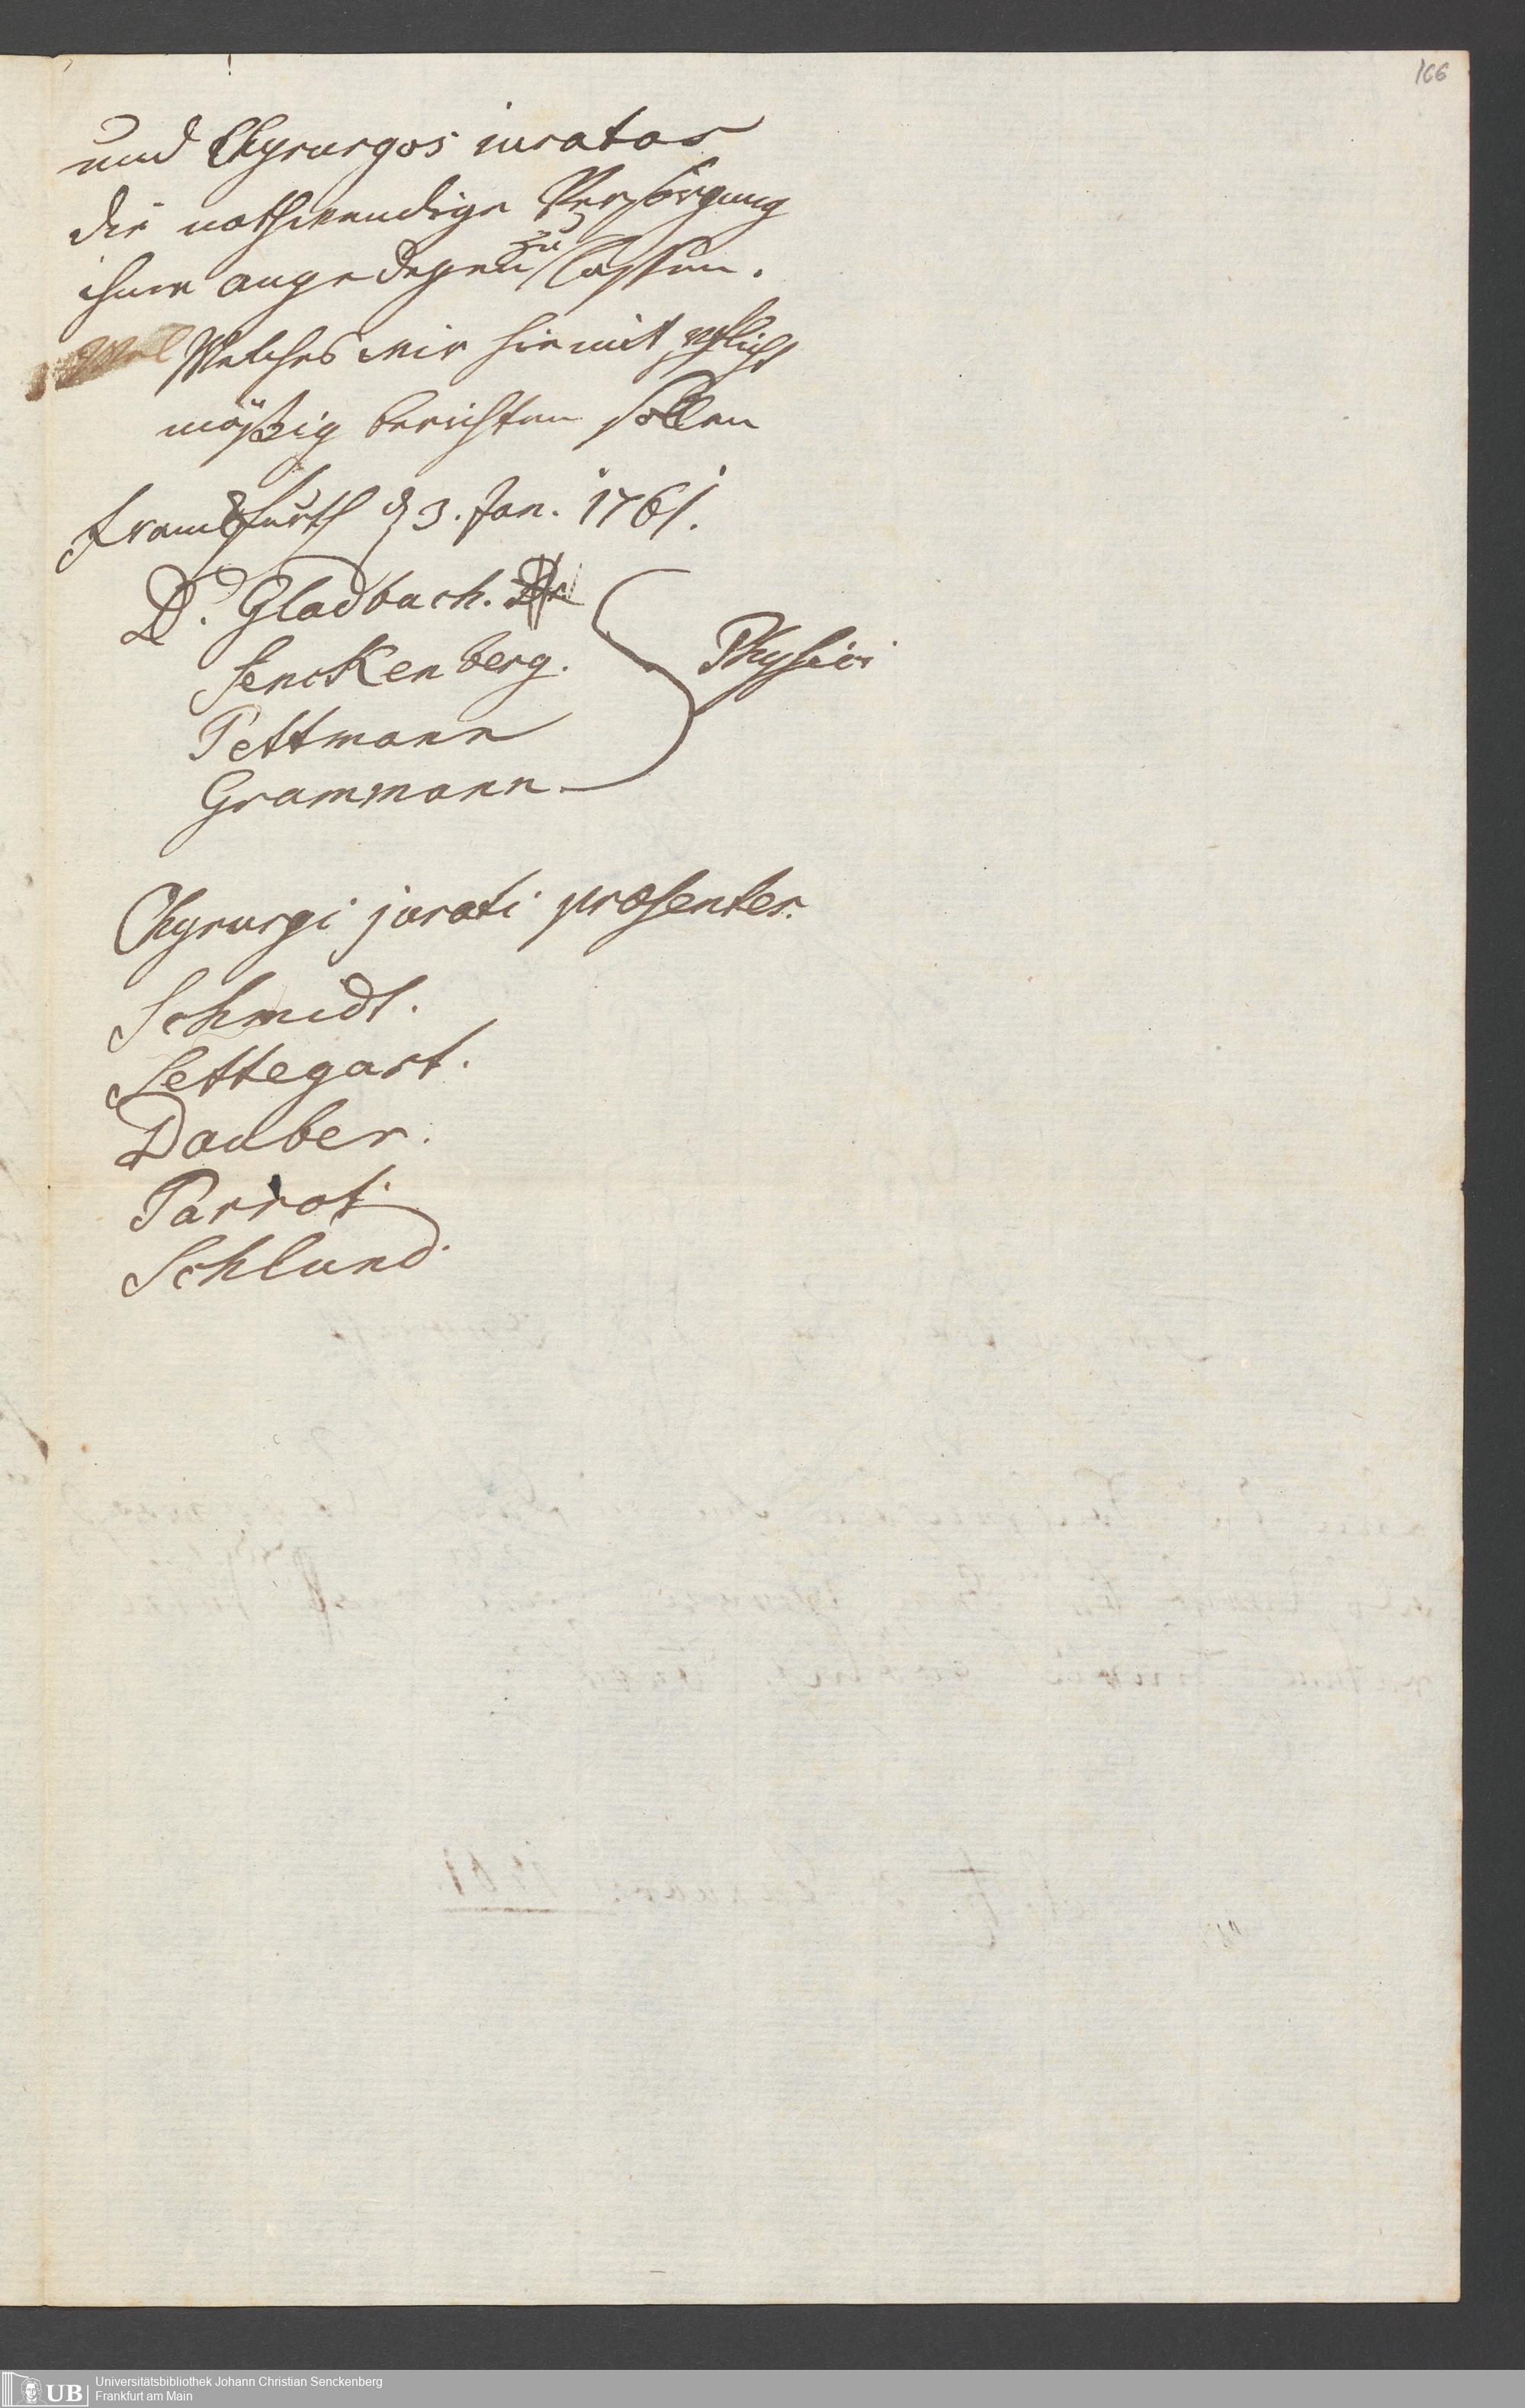 166
und Chyrurgos iuratos
die nothwendige Versorgung
ihme angedeyen zu lassen.
Wel Welches wir hiemit pflicht
mäßig berichten sollen
Franckfurth d 3. Jan. 1761.
D. Gladbach. Dr
Senckenberg.
Physici
Pettmann
Grammann
Chyrurgi jurati præsentes.
Schmidt.
Lettegast.
Dauber.
Parrot.
Schlund.
UB Universitätsbibliothek Johann Christian Senckenberg
Frankfurt am Main